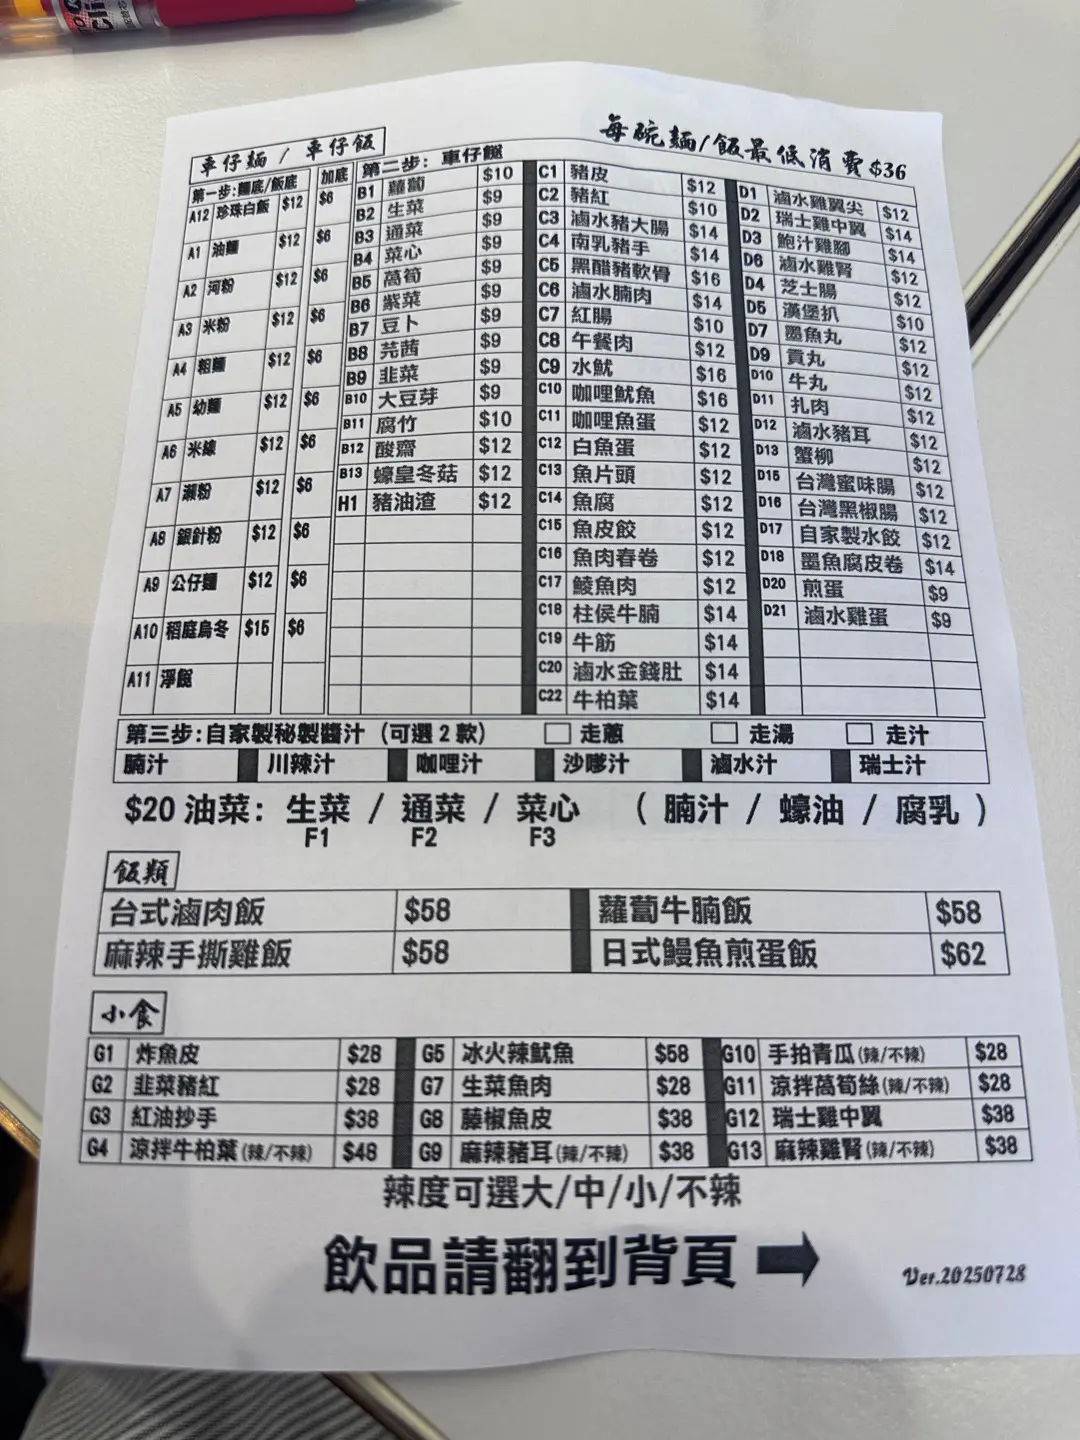 車仔麵 / 車仔飯
每碗麵/飯最低消費$36
第一步:麵底/飯底 加底
A12 珍珠白飯 $12 $6
A1 油麵 $12 $6
A2 河粉 $12 $6
A3 米粉 $12 $6
A4 粗麵 $12 $6
A5 幼麵 $12 $6
A6 米線 $12 $6
A7 瀨粉 $12 $6
A8 銀針粉 $12 $6
A9 公仔麵 $12 $6
A10 稻庭烏冬 $15 $6
A11 淨餸
第二步: 車仔餸
B1 蘿蔔 $10
B2 生菜 $9
B3 通菜 $9
B4 菜心 $9
B5 萵筍 $9
B6 紫菜 $9
B7 豆卜 $9
B8 芫茜 $9
B9 韭菜 $9
B10 大豆芽 $9
B11 腐竹 $10
B12 酸齋 $12
B13 蠔皇冬菇 $12
H1 豬油渣 $12
C1 豬皮 $12
C2 豬紅 $10
C3 滷水豬大腸 $14
C4 南乳豬手 $14
C5 黑醋豬軟骨 $16
C6 滷水腩肉 $14
C7 紅腸 $10
C8 午餐肉 $12
C9 水魷 $16
C10 咖哩魷魚 $16
C11 咖哩魚蛋 $12
C12 白魚蛋 $12
C13 魚片頭 $12
C14 魚腐 $12
C15 魚皮餃 $12
C16 魚肉春卷 $12
C17 鯪魚肉 $12
C18 柱侯牛腩 $14
C19 牛筋 $14
C20 滷水金錢肚 $14
C22 牛柏葉 $14
D1 滷水雞翼尖 $12
D2 瑞士雞中翼 $14
D3 鮑汁雞腳 $14
D6 滷水雞腎 $12
D4 芝士腸 $12
D5 漢堡扒 $10
D7 墨魚丸 $12
D9 貢丸 $12
D10 牛丸 $12
D11 扎肉 $12
D12 滷水豬耳 $12
D13 蟹柳 $12
D15 台灣蜜味腸 $12
D16 台灣黑椒腸 $12
D17 自家製水餃 $12
D18 墨魚腐皮卷 $14
D20 煎蛋 $9
D21 滷水雞蛋 $9
第三步:自家製秘製醬汁 (可選2款) □ 走蔥 □ 走湯 □ 走汁
腩汁 川辣汁 咖哩汁 沙嗲汁 滷水汁 瑞士汁
$20 油菜: 生菜 / 通菜 / 菜心 ( 腩汁 / 蠔油 / 腐乳 )
F1 F2 F3
飯類
台式滷肉飯 $58 蘿蔔牛腩飯 $58
麻辣手撕雞飯 $58 日式鰻魚煎蛋飯 $62
小食
G1 炸魚皮 $28 G5 冰火辣魷魚 $58 G10 手拍青瓜(辣/不辣) $28
G2 韭菜豬紅 $28 G7 生菜魚肉 $28 G11 涼拌萵筍絲(辣/不辣) $28
G3 紅油抄手 $38 G8 藤椒魚皮 $38 G12 瑞士雞中翼 $38
G4 涼拌牛柏葉(辣/不辣) $48 G9 麻辣豬耳(辣/不辣) $38 G13 麻辣雞腎(辣/不辣) $38
辣度可選大/中/小/不辣
飲品請翻到背頁 ➡
Ver.20250728